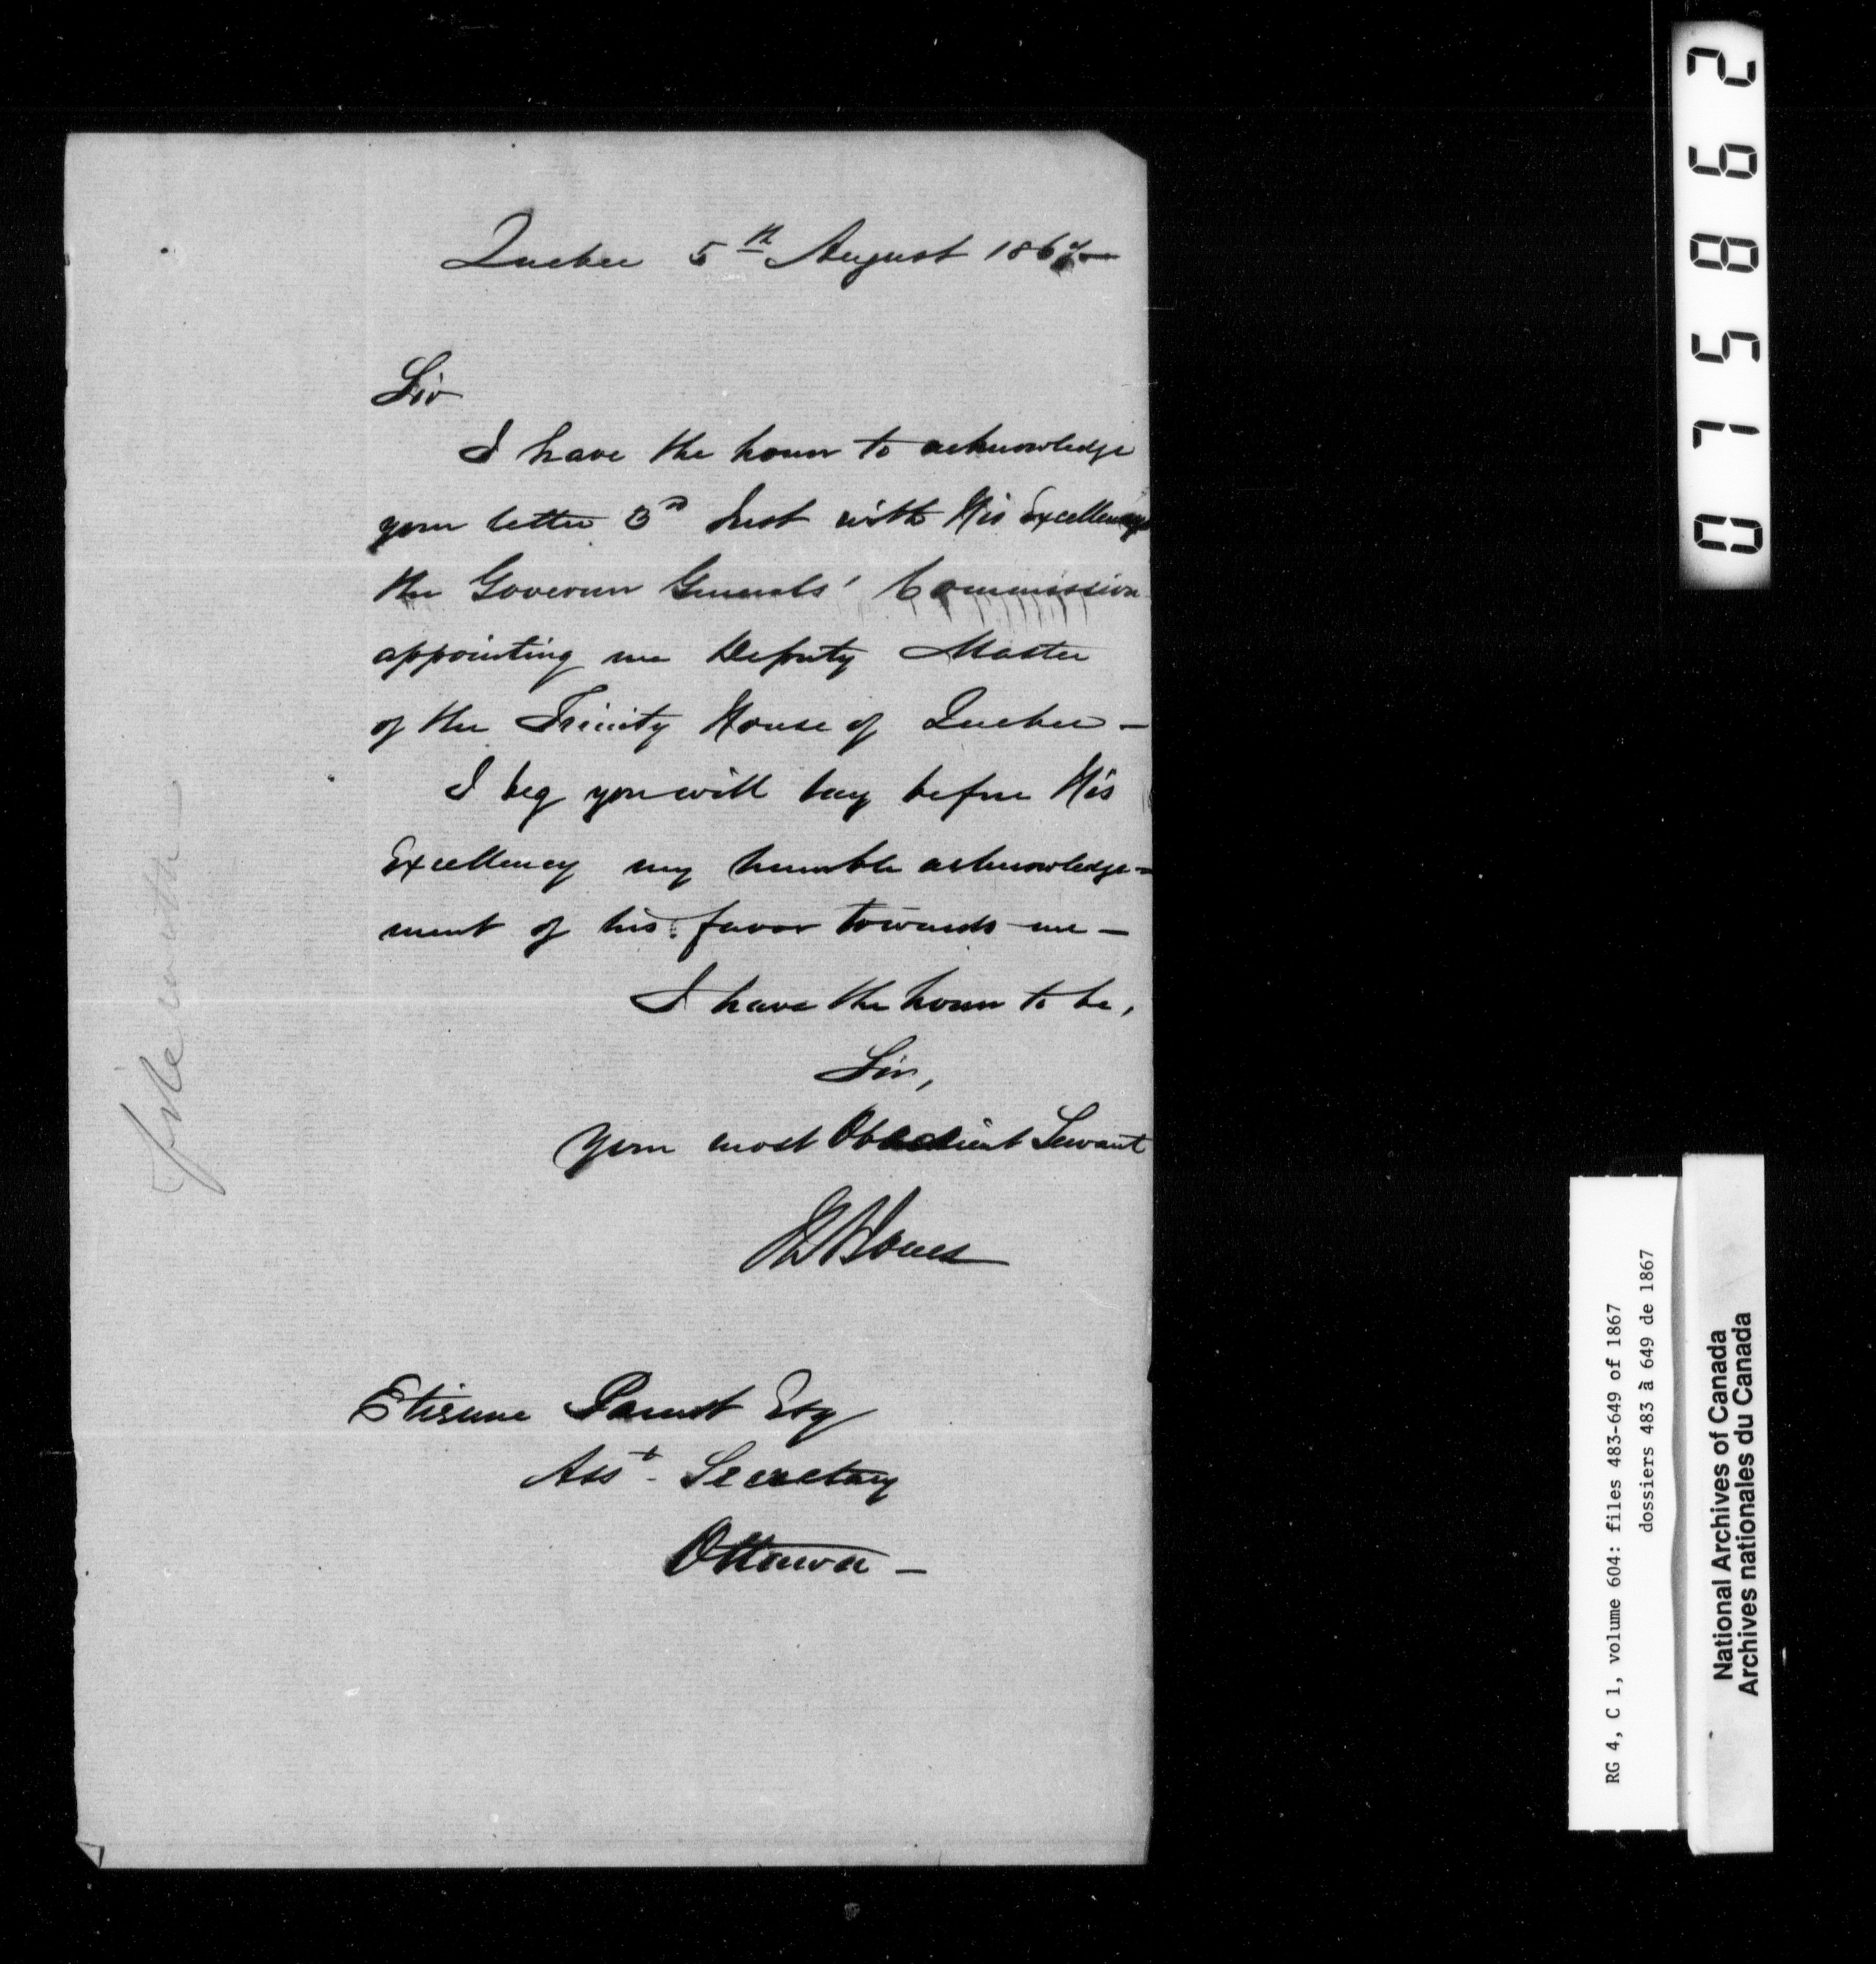 Quebec 5th August 1867
Sir
I have the honor to acknowledge
your letter 3rd Inst with His Excellency
the Governor Generals' Commission
appointing me Deputy Master
of the Trinity House of Quebec –
I beg you will lay before His
Excellency my humble acknowledge-
ment of his favor towards me –
I have the honor to be,
Sir,
Your most Obedient Servant
Etienne Parent Esq
Asst. Secretary
Ottawa –
file with
075862
RG 4, C 1, volume 604: files 483-649 of 1867
dossiers 483 à 649 de 1867
National Archives of Canada
Archives nationales du Canada